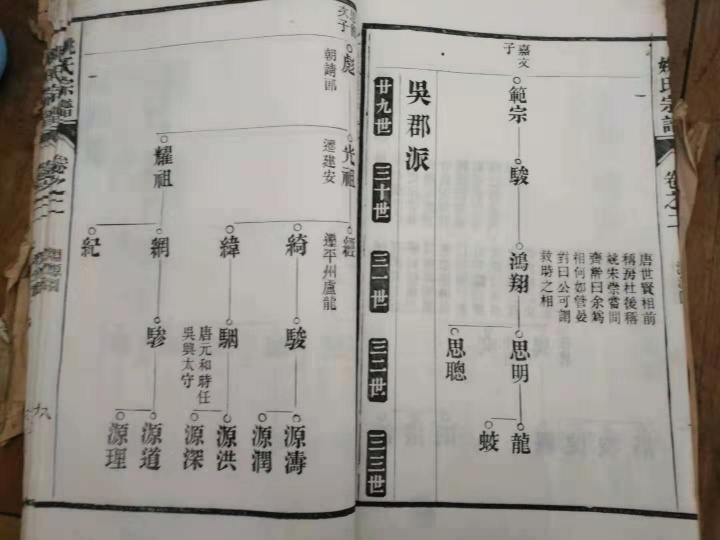 姚氏宗譜
卷之二
嘉文
子
範宗
駿
鴻翔
唐世賢相前
稱房杜後稱
姚宋崇嘗問
齋澣曰余爲
相何如管晏
對曰公可謂
救時之相
思明
思聰
龍
蛟
吳郡派
廿九世
三十世
三一世
三二世
三三世
文子
彪
朝請郎
光祖
遷建安
耀祖
經
遷平州盧龍
綺
緯
網
紀
駿
駰
唐元和時任
吳興太守
驂
源濤
源潤
源洪
源深
源道
源理
姚氏宗譜